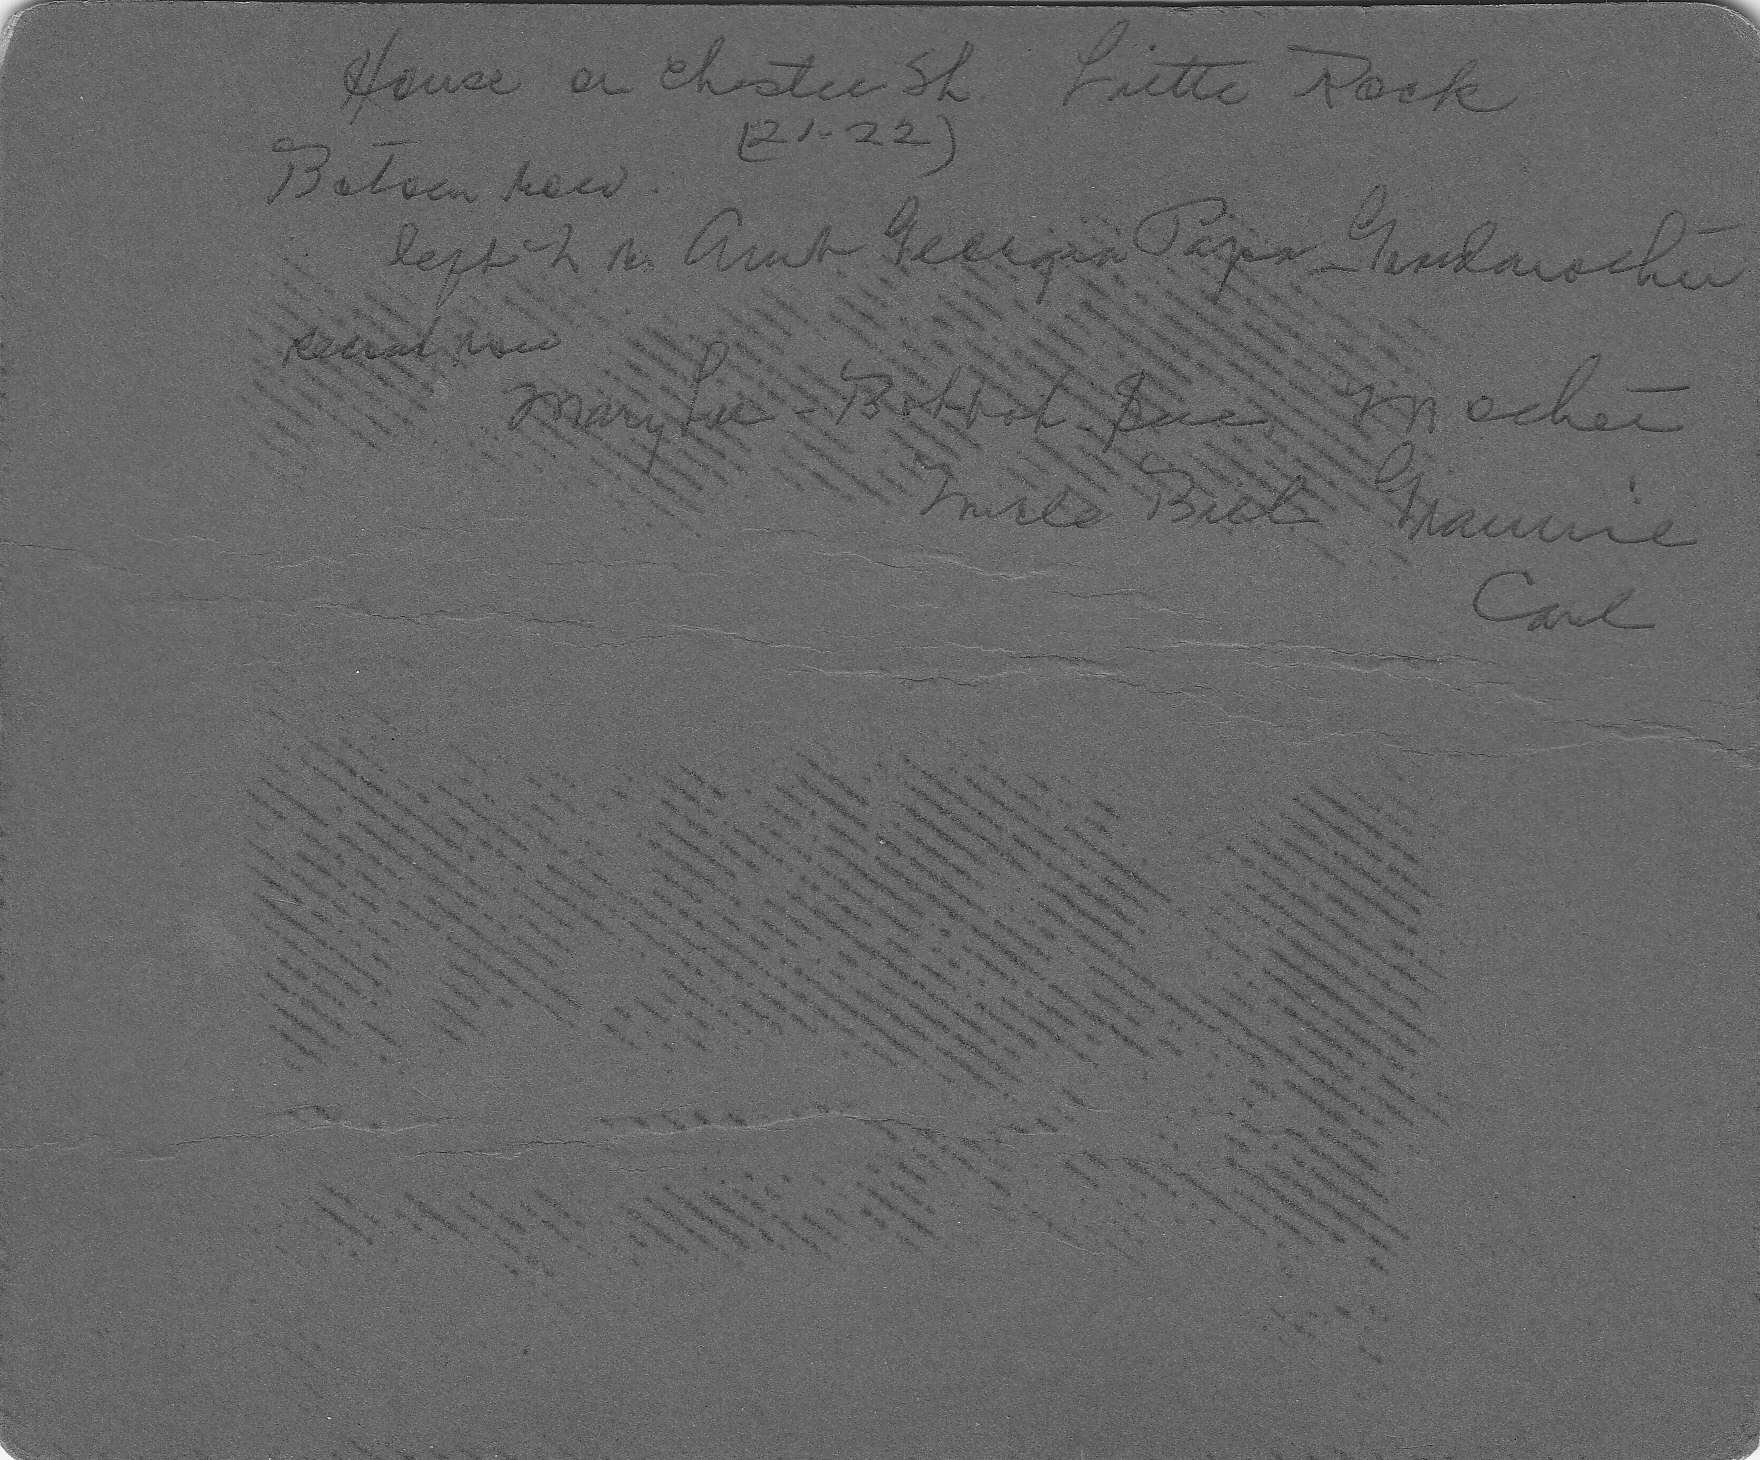 House on Chester St. Little Rock
(21-22)
Bottom row
left to r. Aunt Georgia Papa - Grandmother
second row
Mary Sue - Mother
Uncle Bill Grannie
Carl